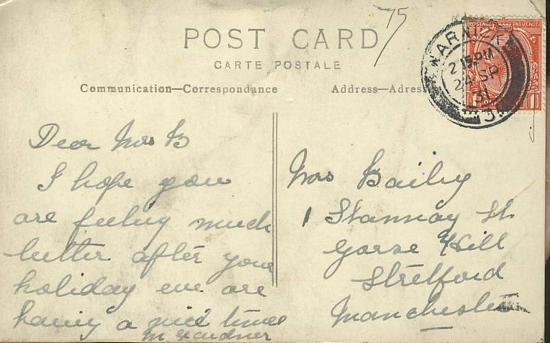 75
POST CARD
CARTE POSTALE
Communication—Correspondence
Address—Adres
WARWICK
2 15 PM
24 SP
31
Dear Mrs B
I hope you
are feeling much
better after your
holiday we are
having a nice time
M Gardner
Mrs Baily
1 Stannay St
Gorse Hill
Stretford
Manchester